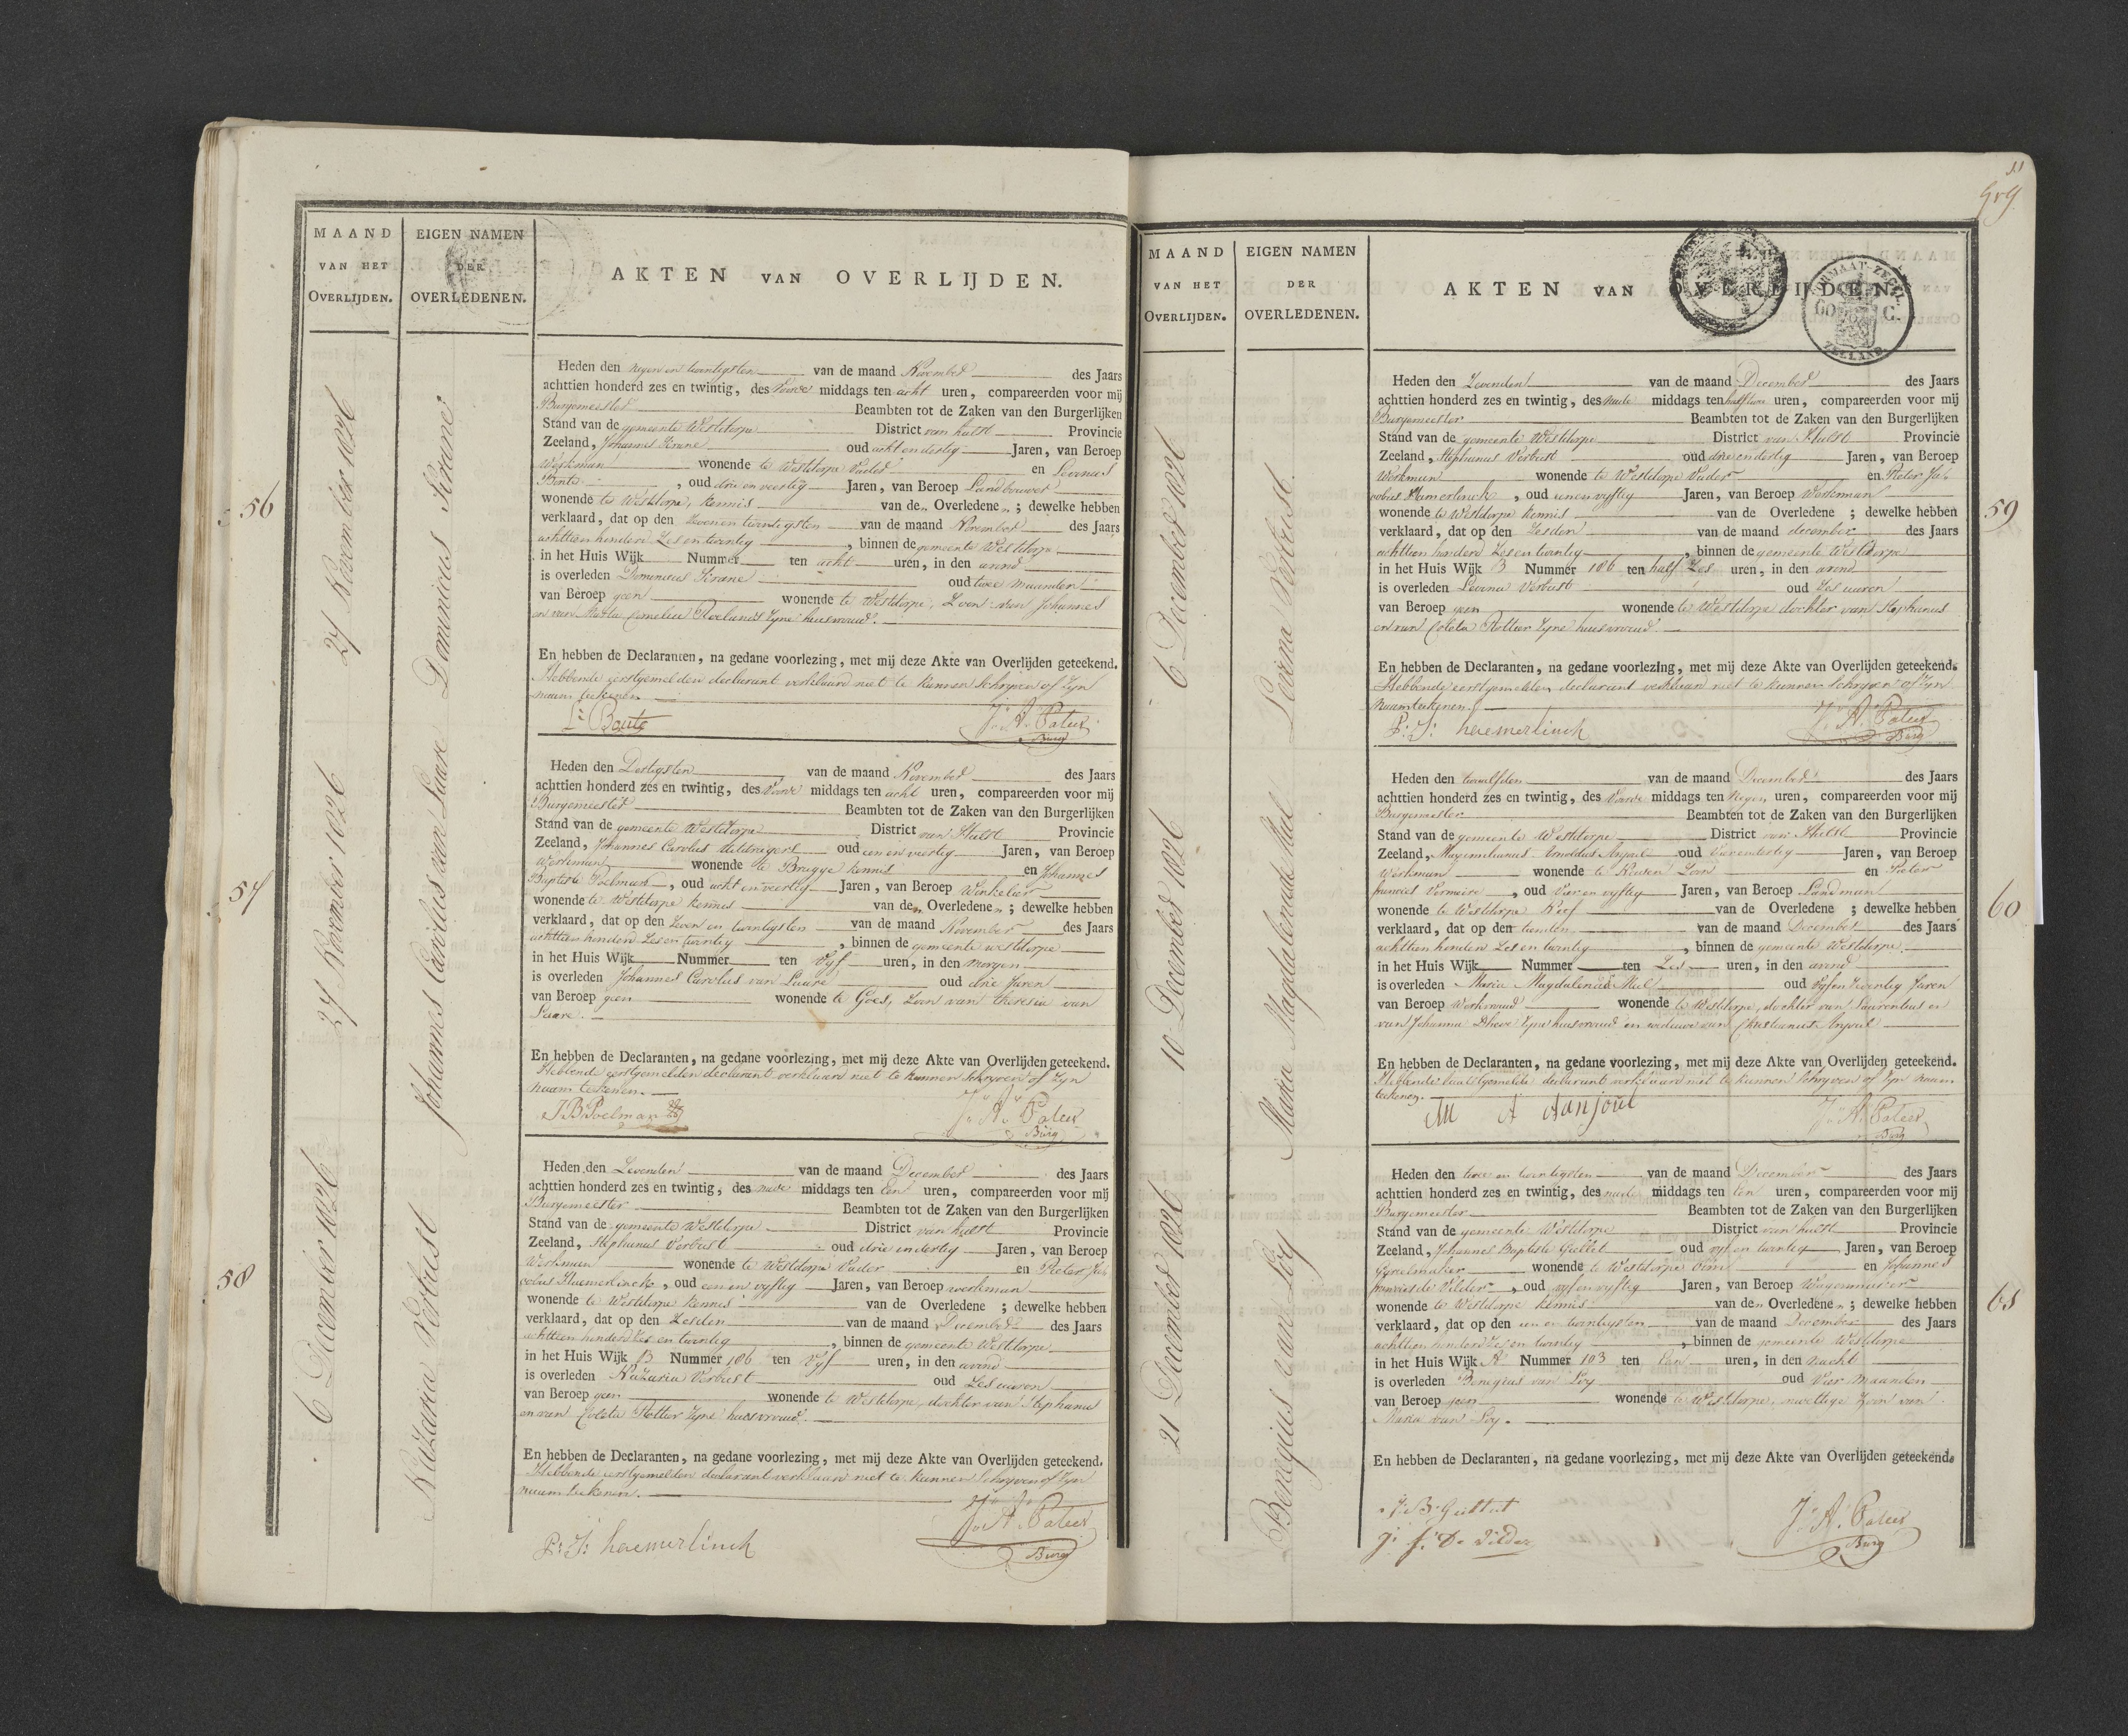 MAAND
VAN HET
OVERLIJDEN.
EIGEN NAMEN
DER
OVERLEDENEN.
AKTEN VAN OVERLIJDEN.
56
27 November 1826
Dominicus
Heden den negen en twintigsten van de maand November des Jaars
achttien honderd zes en twintig, des voor middags ten acht uren, compareerden voor mij
Burgemeester Beambten tot de Zaken van den Burgerlijken
Stand van de gemeente Westdorpe District van hulst Provincie
Zeeland, Johannes oud acht en dertig Jaren, van Beroep
Werkman wonende te Westdorpe Vader en Livinus
Boute, oud drie en veertig Jaren, van Beroep Landbouwer
wonende te Westdorpe, kennis van de Overledene; dewelke hebben
verklaard, dat op den Zeven en twintigsten van de maand November des Jaars
achttien honderd Zes en twintig, binnen de gemeente Westdorpe
in het Huis Wijk Nummer ten acht uren, in den avond
is overleden Dominicus oud twee maanden
van Beroep geen wonende te Westdorpe, Zoon van Johannes
en van Maria Cornelia Roelands Zyne huisvrouw.
En hebben de Declaranten, na gedane voorlezing, met mij deze Akte van Overlijden geteekend.
Hebbende eerstgemelden declarant verklaard niet te kunnen Schryven of Zyn
naam teekenen
L: Boute J: A: Pateer
Burg
57
27 November 1826
Johannes Carolus van Laare
Heden den Dertigsten van de maand November des Jaars
achttien honderd zes en twintig, des Voor middags ten acht uren, compareerden voor mij
Burgemeester Beambten tot de Zaken van den Burgerlijken
Stand van de gemeente Westdorpe District van Hulst Provincie
Zeeland, Johannes Carolus oud een en veertig Jaren, van Beroep
Werkman wonende te Brugge kennis en Johannes
Baptiste Poelman, oud acht en veertig Jaren, van Beroep Winkelier
wonende te Westdorpe kennis van de Overledene; dewelke hebben
verklaard, dat op den Zeven en twintigsten van de maand November des Jaars
achttien honderd Zes en twintig, binnen de gemeente westdorpe
in het Huis Wijk Nummer ten Vyf uren, in den morgen
is overleden Johannes Carolus van Laare oud drie Jaren
van Beroep geen wonende te Goes, Zoon van theresia van
Laare.
En hebben de Declaranten, na gedane voorlezing, met mij deze Akte van Overlijden geteekend.
Hebbende eerstgemelden declarant verklaard niet te kunnen Schryven of Zyn
naam teekenen.
J.B. Poelman J: A: Pateer
Burg
58
6 December 1826
Nazaria Verbust
Heden den Zevenden van de maand December des Jaars
achttien honderd zes en twintig, des na middags ten een uren, compareerden voor mij
Burgemeester Beambten tot de Zaken van den Burgerlijken
Stand van de gemeente Westdorpe District van hulst Provincie
Zeeland, Stephanus Verbust oud drie en dertig Jaren, van Beroep
Werkman wonende te Westdorpe Vader en Pieter Ja-
cobus Haemerlinck, oud een en vyftig Jaren, van Beroep werkman
wonende te Westdorpe kennis van de Overledene; dewelke hebben
verklaard, dat op den Zesden van de maand December des Jaars
achttien honderd Zes en twintig, binnen de gemeente Westdorpe
in het Huis Wijk B Nummer 186 ten Vyf uren, in den avond
is overleden Nazaria Verbust oud Zes uuren
van Beroep geen wonende te Westdorpe, dochter van Stephanus
en van Coleta Rottier Zyne huisvrouw.
En hebben de Declaranten, na gedane voorlezing, met mij deze Akte van Overlijden geteekend.
Hebbende eerstgemelden declarant verklaard niet te kunnen Schryven of Zyn
naam teekenen.
J: A: Pateer
P: J: haemerlinck Burg
MAAND
VAN HET
OVERLIJDEN.
EIGEN NAMEN
DER
OVERLEDENEN.
AKTEN VAN OVERLIJDEN.
ZEELAND
59
6 December 1826
Levina Verbust.
Heden den Zevenden van de maand December des Jaars
achttien honderd zes en twintig, des na middags ten half twee uren, compareerden voor mij
Burgemeester Beambten tot de Zaken van den Burgerlijken
Stand van de gemeente Westdorpe District van Hulst Provincie
Zeeland, Stephanus Verbust oud drie en dertig Jaren, van Beroep
Werkman wonende te Westdorpe Vader en Pieter Ja-
cobus Hamerlinck, oud een en vyftig Jaren, van Beroep Werkman
wonende te Westdorpe kennis van de Overledene; dewelke hebben
verklaard, dat op den Zesden van de maand december des Jaars
achttien honderd Zes en twintig, binnen de gemeente Westdorpe
in het Huis Wijk B Nummer 186 ten half Zes uren, in den avond
is overleden Levina Verbust oud Zes uuren
van Beroep geen wonende te Westdorpe dochter van Stephanus
en van Coleta Rottier Zyne huisvrouw.
En hebben de Declaranten, na gedane voorlezing, met mij deze Akte van Overlijden geteekend.
Hebbende eerstgemelden declarant verklaard niet te kunnen Schryven of Zyn
naam teekenen.
P: J: haemerlinck J: A: Pateer
Burg
60
10 December 1826
Maria Magdalena de Mul
Heden den twaalfden van de maand December des Jaars
achttien honderd zes en twintig, des Voor middags ten Negen uren, compareerden voor mij
Burgemeester Beambten tot de Zaken van den Burgerlijken
Stand van de gemeente Westdorpe District van Hulst Provincie
Zeeland, Maximilianus Arnoldus oud Vier en dertig Jaren, van Beroep
Werkman wonende te Zoon en Pieter
francies Vermeire, oud Vier en vyftig Jaren, van Beroep Landman
wonende te Westdorpe Neef van de Overledene; dewelke hebben
verklaard, dat op den tienden van de maand December des Jaars
achttien honderd Zes en twintig, binnen de gemeente Westdorpe
in het Huis Wijk Nummer ten Zes uren, in den avond
is overleden Maria Magdalena de Mul oud Vyf en Zeventig Jaren
van Beroep Werkvrouw wonende te Westdorpe, dochter van Laurentius en
van Johanna Dhaese Zyne huisvrouw en weduwe van Christianus
En hebben de Declaranten, na gedane voorlezing, met mij deze Akte van Overlijden geteekend.
Hebbende laatstgemelde declarant verklaard niet te kunnen Schryven of Zyn naam
teekenen.
M A Aanjoul J: A: Pateer
Burg
61
21 December 1826
Benegius van Loy
Heden den twee en twintigsten van de maand December des Jaars
achttien honderd zes en twintig, des na middags ten een uren, compareerden voor mij
Burgemeester Beambten tot de Zaken van den Burgerlijken
Stand van de gemeente Westdorpe District van hulst Provincie
Zeeland, Johannes Baptiste oud vyf en twintig Jaren, van Beroep
wonende te Westdorpe Oom en Johannes
francies de Vilder, oud vyf en vyftig Jaren, van Beroep Wagenmaker
wonende te Westdorpe kennis van de Overledene; dewelke hebben
verklaard, dat op den een en twintigsten van de maand December des Jaars
achttien honderd Zes en twintig, binnen de gemeente Westdorpe
in het Huis Wijk A Nummer 103 ten Een uren, in den nacht
is overleden Benegius van Loy oud Vier maanden
van Beroep geen wonende te Westdorpe, onwettige Zoon van
Maria van Loy.
En hebben de Declaranten, na gedane voorlezing, met mij deze Akte van Overlijden geteekend.
J: A: Pateer
J: f: De Vilder Burg